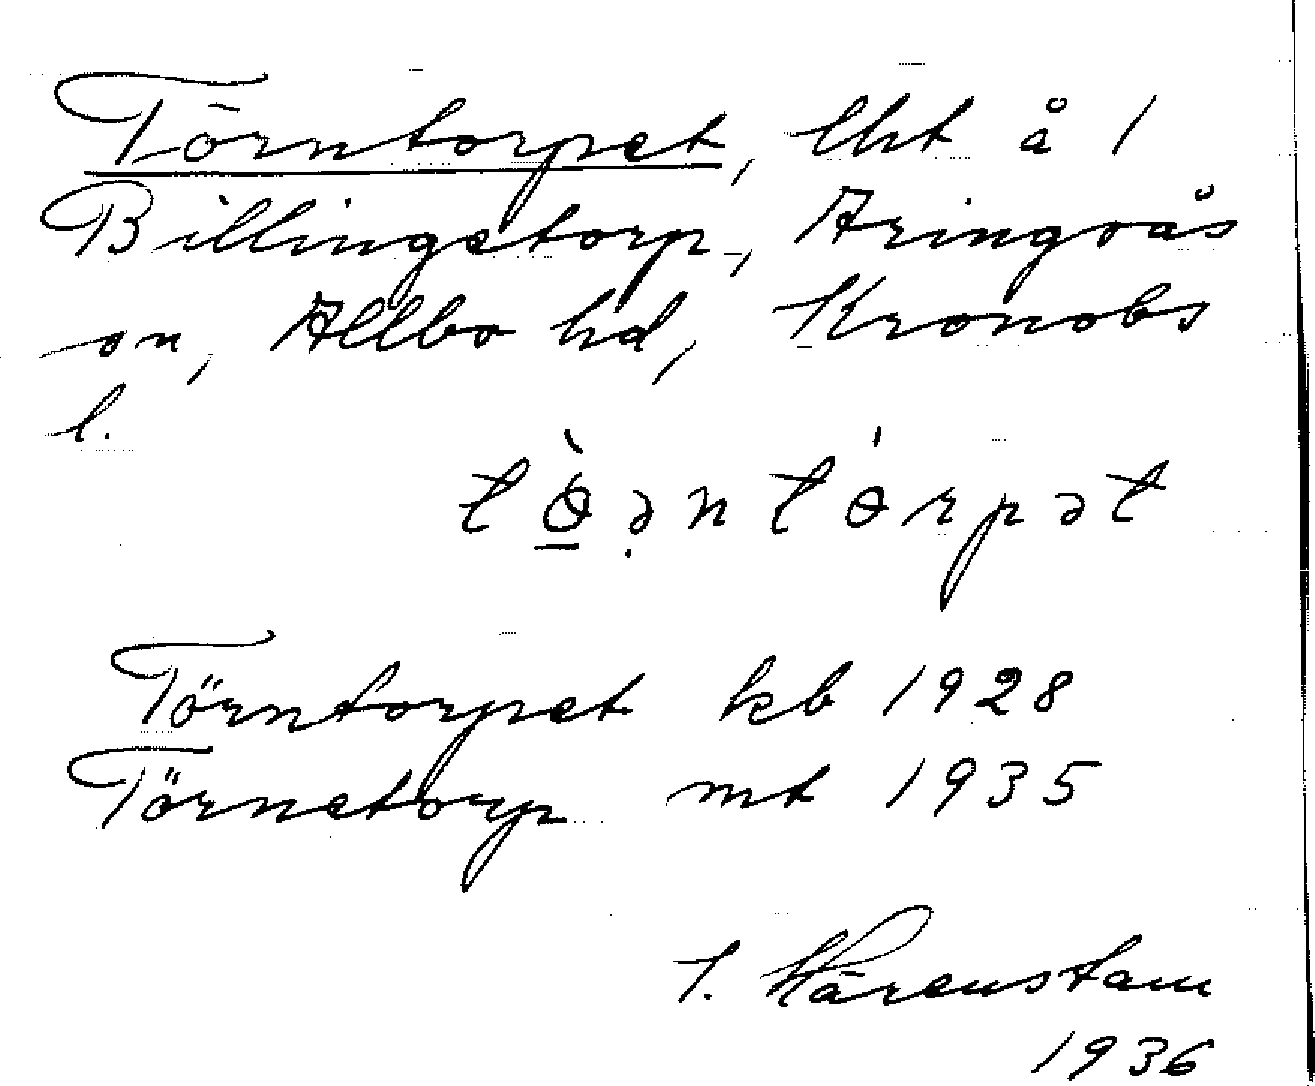 Törntorpet, lht å 1
Billingstorp, Aringsås
sn, Allbo hd, Kronobs
l.
Törntorpet kb 1928
Törnetorp mt 1935
T. Härenstam
1936